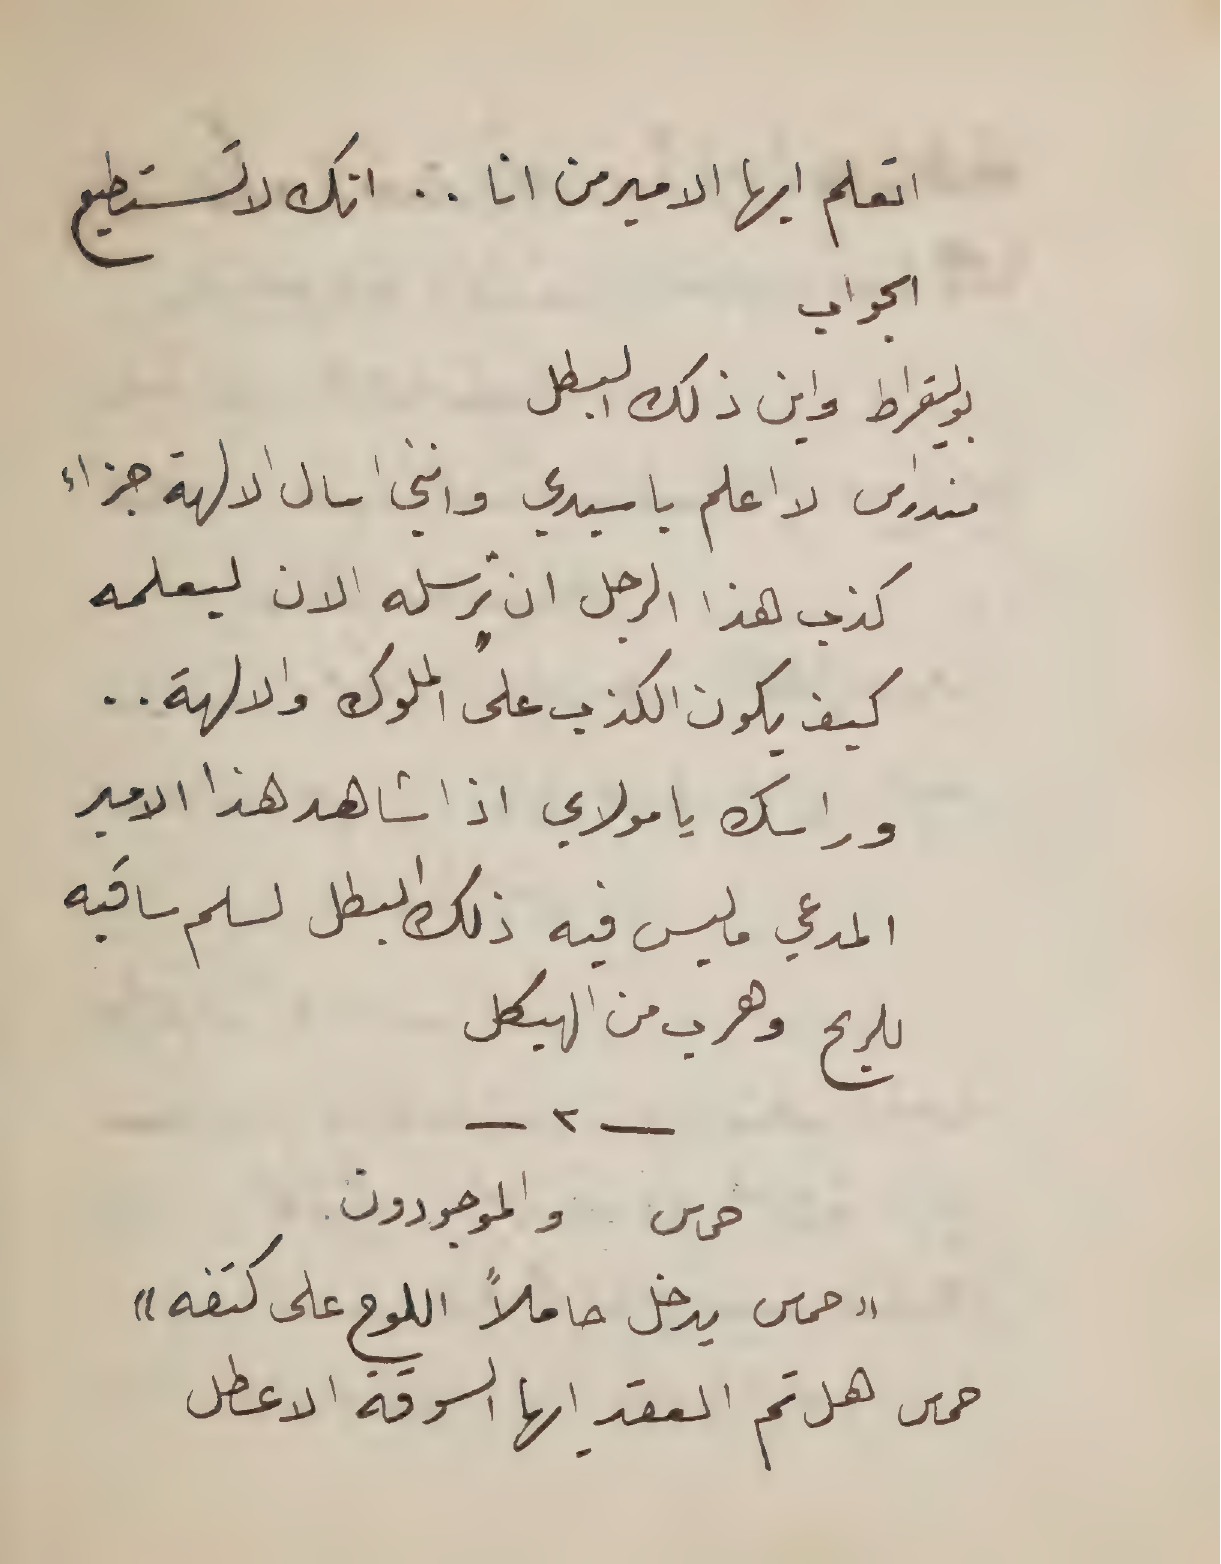 اتعلم ايها الامير من انا .. انك لا تستطيع
الجواب
بوليقراط واين ذلك البطل
مندراس لا اعلم يا سيدي وانني اسال الالهة جزاء
كذب هذا الرجل ان ترسله الان ليعلمه
كيف يكون الكذب على الملوك والالهة ..
وراسك يا مولاي اذا شاهد هذا الامير
المدعي ما ليس فيه ذلك البطل لسلم ساقيه
للريح وهرب من الهيكل
— ٢ —
حماس والموجودون
« حماس يدخل حاملاً اللوح على كتفه »
حماس هل تم العقد ايها السوقة الاعطل